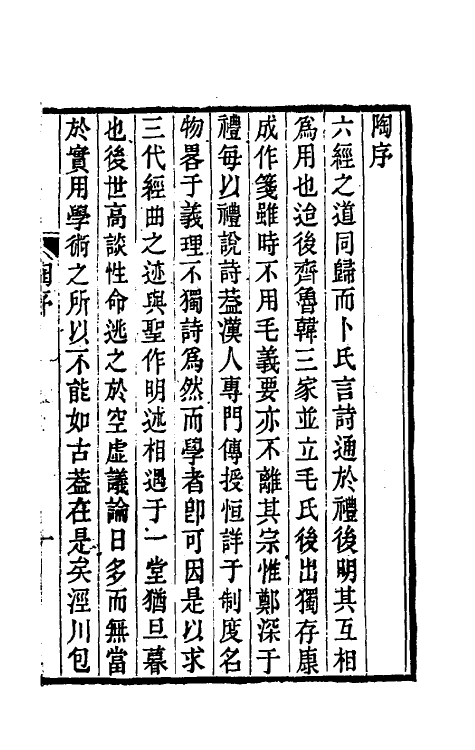 陶序
六經之道同歸而卜氏言詩通於禮後明其互相
爲用也迨後齊魯韓三家並立毛氏後出獨存康
成作箋雖時不用毛義要亦不離其宗惟鄭深于
禮每以禮說詩葢漢人專門傳授恒詳于制度名
物畧于義理不獨詩爲然而學者卽可因是以求
三代經曲之迹與聖作明述相遇于一堂猶旦暮
也後世高談性命逃之於空虛議論日多而無當
於實用學術之所以不能如古葢在是矣涇川包